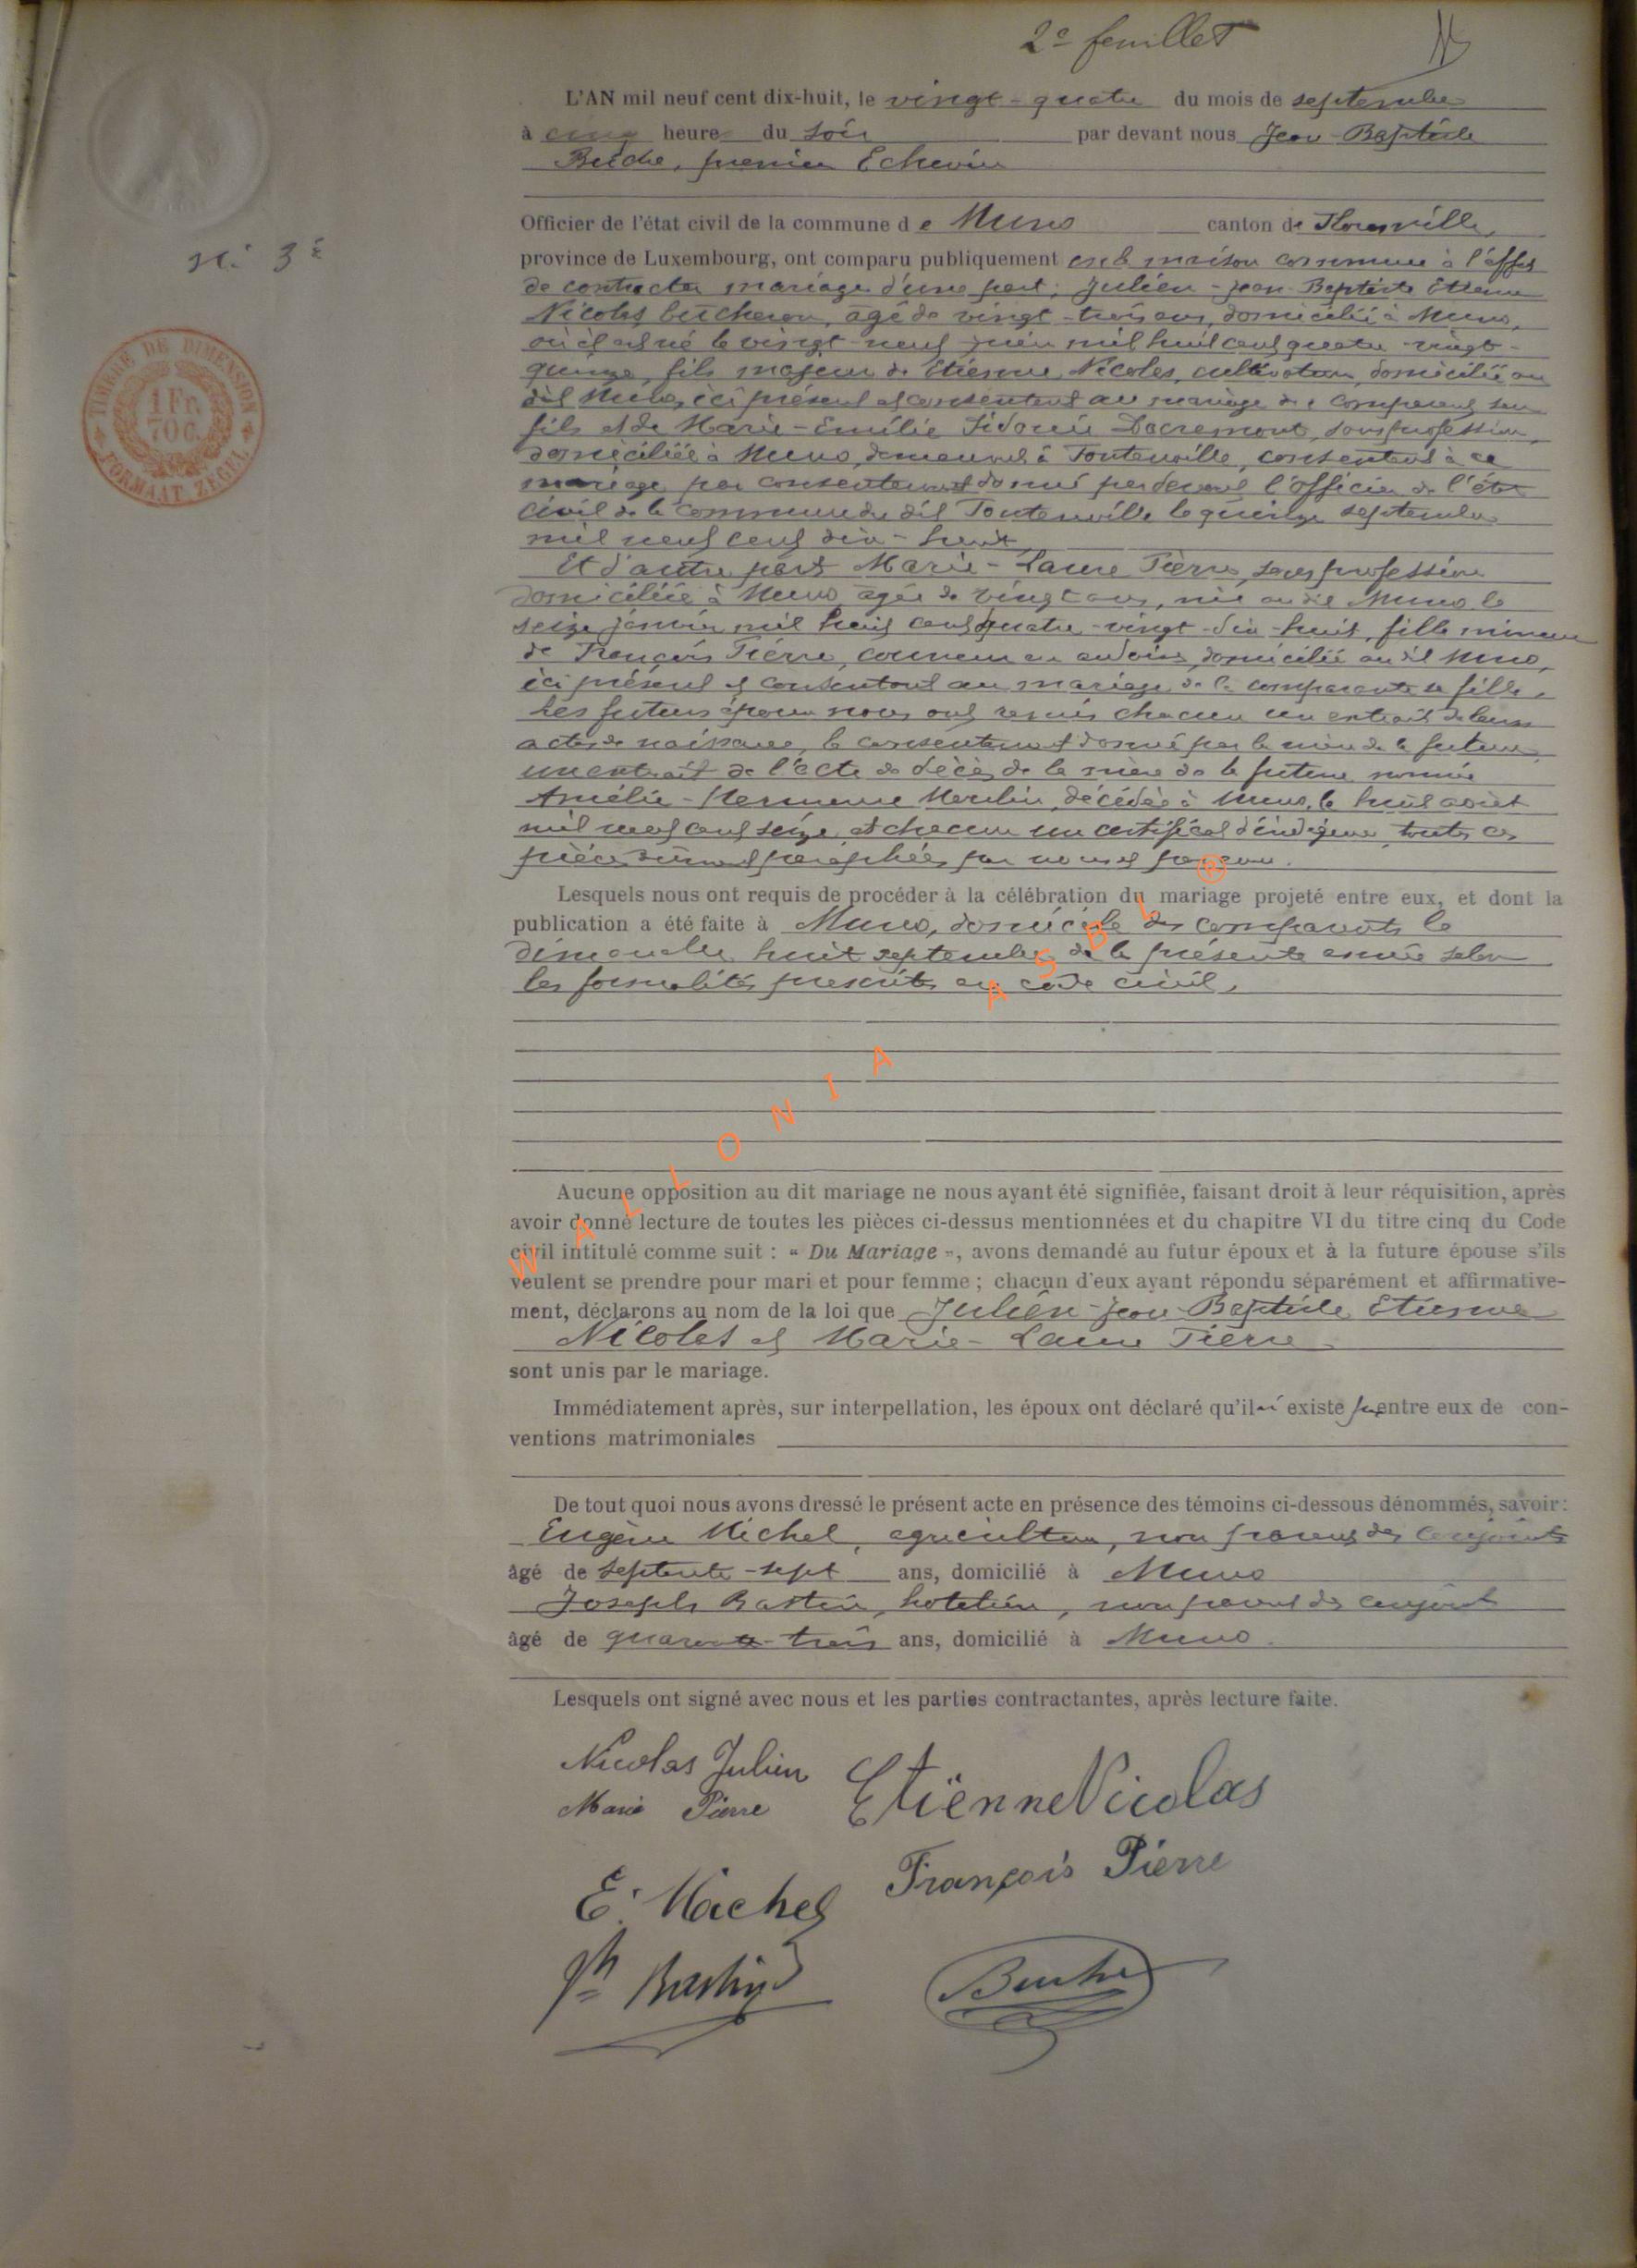 2e feuillet
L'AN mil neuf cent dix-huit, le vingt-quatre du mois de septembre
à cinq heures du soir par devant nous Jean-Baptiste
Buche, premier Echevin
Officier de l'état civil de la commune de Muno canton de Florenville,
province de Luxembourg, ont comparu publiquement en la maison commune à l'effet
N° 3
de contracter mariage d'une part; Julien-Jean-Baptiste Etienne
Nicolas, bûcheron, âgé de vingt-trois ans, domicilié à Muno,
où il est né le vingt-neuf juin mil huit cent quatre-vingt-
quinze, fils majeur de Etienne Nicolas, cultivateur, domicilié au
TIMBRE DE DIMENSION
1 Fr.
70 c.
FORMAAT ZEGEL
dit Muno, ici présent et consentant au mariage de comparant son
fils et de Marie-Emélie Sidonie Lacremont, sans profession,
domiciliée à Muno, demeurant à Tontenville, consentant à ce
mariage par consentement donné par devant l'officier de l'état
civil de la commune du dit Tontenville le quinze septembre
mil neuf cent dix-huit
Et d'autre part Marie-Laure Pierre, sans profession
domiciliée à Muno âgée de vingt ans, née au dit Muno le
seize janvier mil huit cent quatre-vingt-dix-huit, fille mineure
de François Pierre, domicilié au dit Muno,
ici présent et consentant au mariage de la comparante sa fille.
Les futurs époux nous ont remis chacun un extrait de leurs
actes de naissance, le consentement donné par la mère de le futur,
un extrait de l'acte de décès de la mère de la future nommée
Amélie-Hermine décédée à Muno, le huit août
mil neuf cent seize, et chacun un certificat d'indigence, toutes ces
pièces dûment paraphées par nous
Lesquels nous ont requis de procéder à la célébration du mariage projeté entre eux, et dont la
publication a été faite à Muno, domicile des comparants le
dimanche huit septembre de la présente année selon
les formalités prescrites au code civil.
WALLONIA ASBL ®
Aucune opposition au dit mariage ne nous ayant été signifiée, faisant droit à leur réquisition, après
avoir donné lecture de toutes les pièces ci-dessus mentionnées et du chapitre VI du titre cinq du Code
civil intitulé comme suit : « Du Mariage », avons demandé au futur époux et à la future épouse s'ils
veulent se prendre pour mari et pour femme ; chacun d'eux ayant répondu séparément et affirmative-
ment, déclarons au nom de la loi que Julien-Jean-Baptiste Etienne
Nicolas et Marie-Laure Pierre
sont unis par le mariage.
Immédiatement après, sur interpellation, les époux ont déclaré qu'il n'existe pas entre eux de con-
ventions matrimoniales
De tout quoi nous avons dressé le présent acte en présence des témoins ci-dessous dénommés, savoir :
Eugène Michel, agriculteur, non parent des conjoints
âgé de septante-sept ans, domicilié à Muno
Joseph Bastin, hotelier, non parent des conjoints
âgé de quarante-trois ans, domicilié à Muno.
Lesquels ont signé avec nous et les parties contractantes, après lecture faite.
Nicolas Julien
Etiënne Nicolas
Marie Pierre
François Pierre
E. Michel
Jh Bastin
Buche